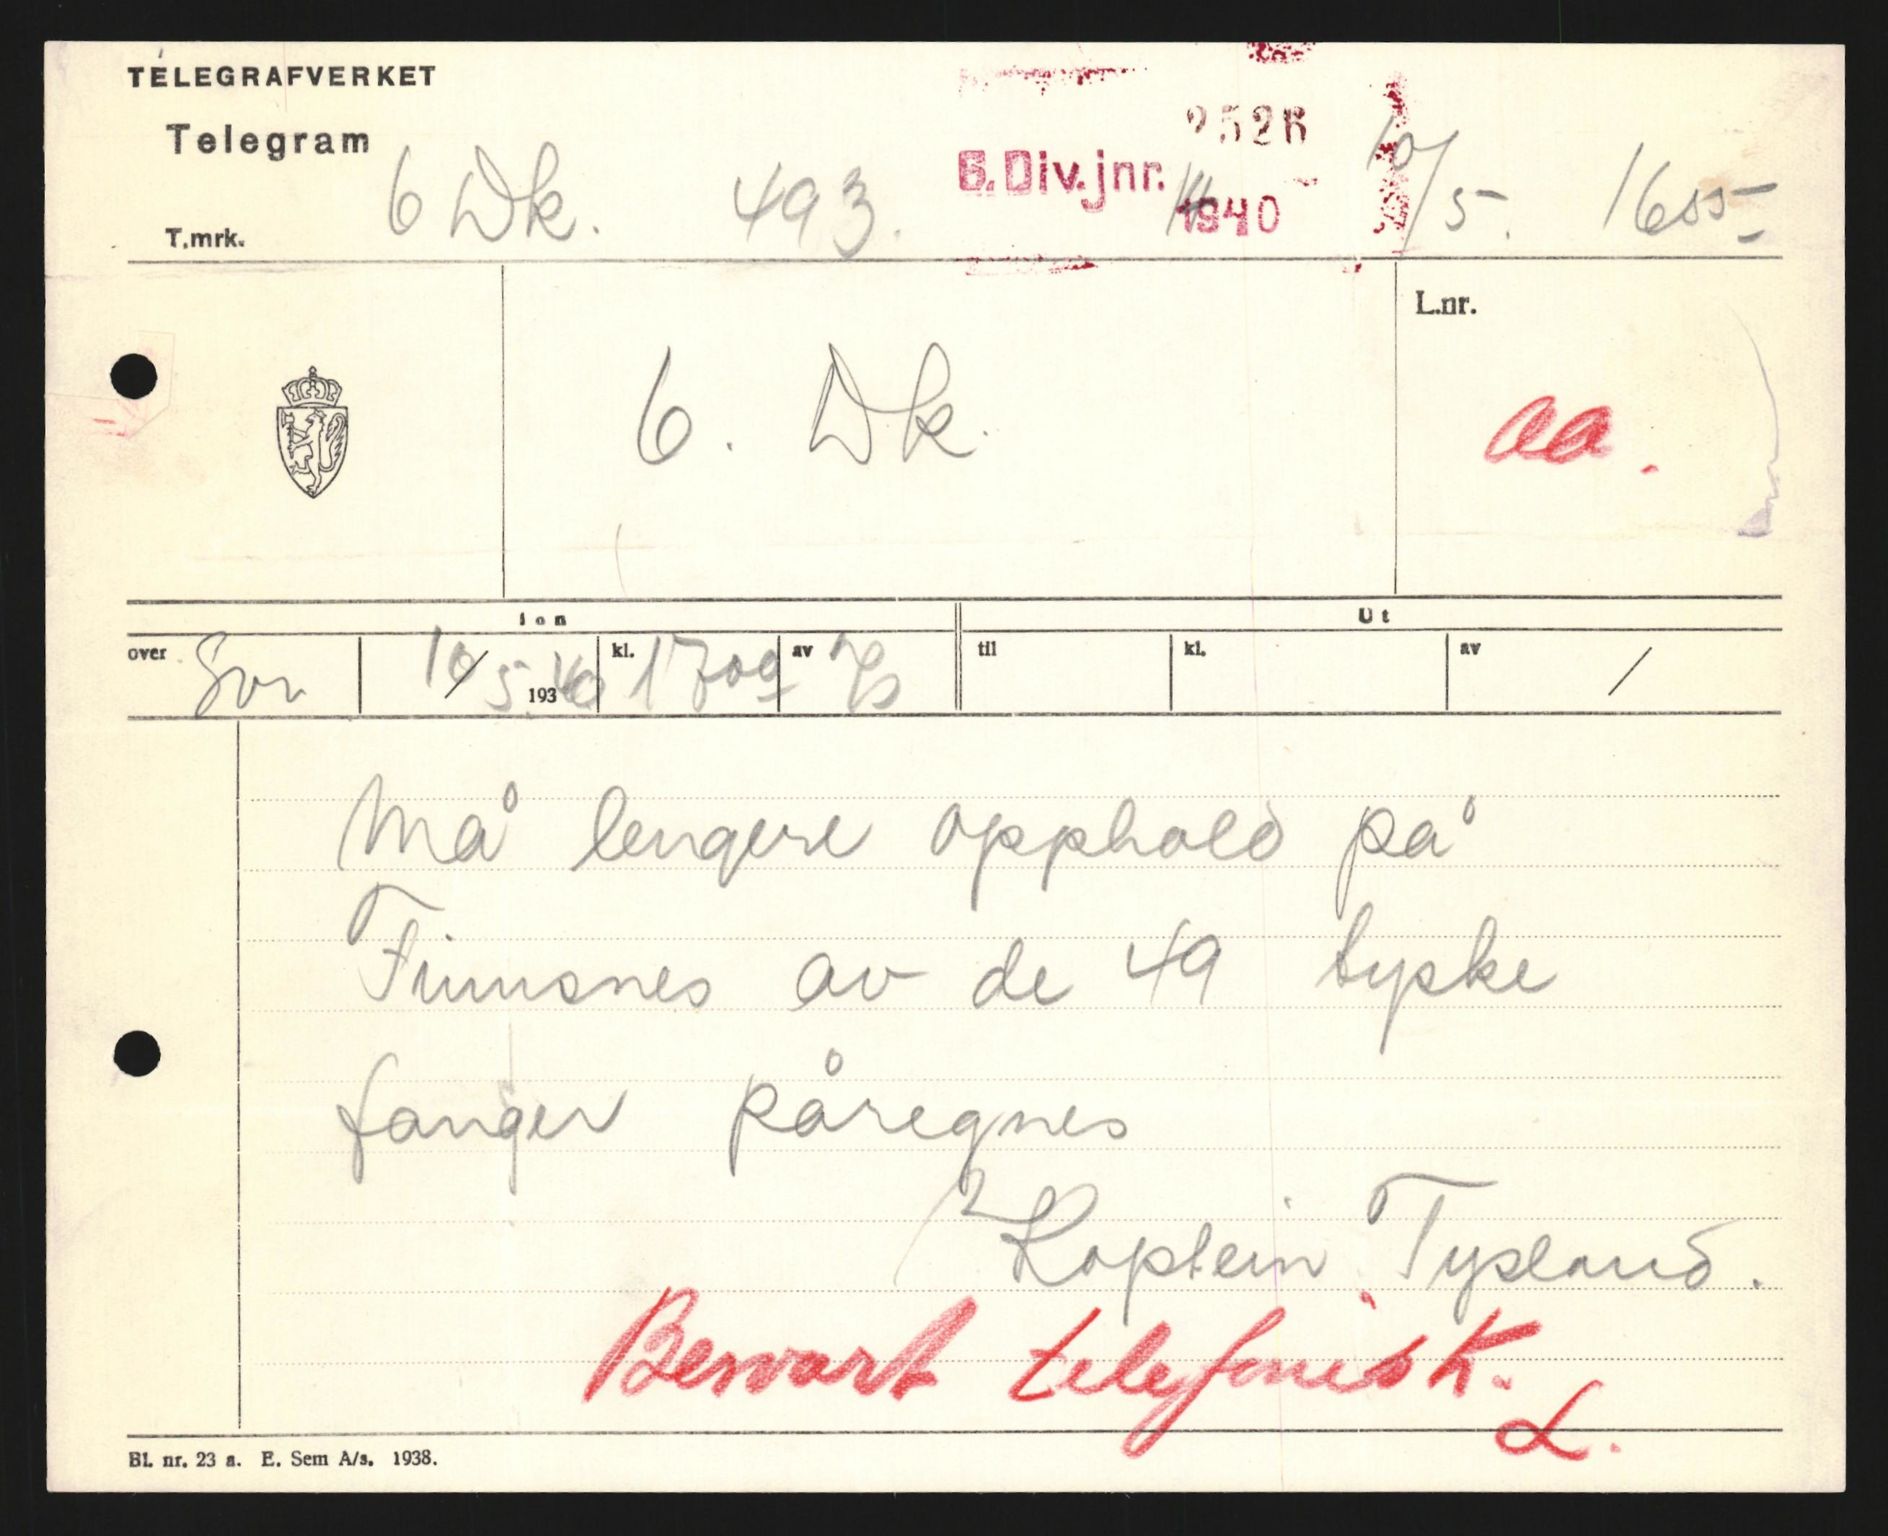 TELEGRAFVERKET
Telegram
T.mrk. 6 Dk. 493. 14 10/5. 1655
2526
6. Div. jnr.
1940
6. Dk.
L.nr.
aa.
Inn Ut
over 10/5 193 40 kl. 1700 av til kl. av /
Må lengere opphold på
Finnsnes av de 49 tyske
fanger påregnes
Kaptein Tysland.
Besvart telefonisk.
L.
Bl. nr. 23 a. E. Sem A/s. 1938.